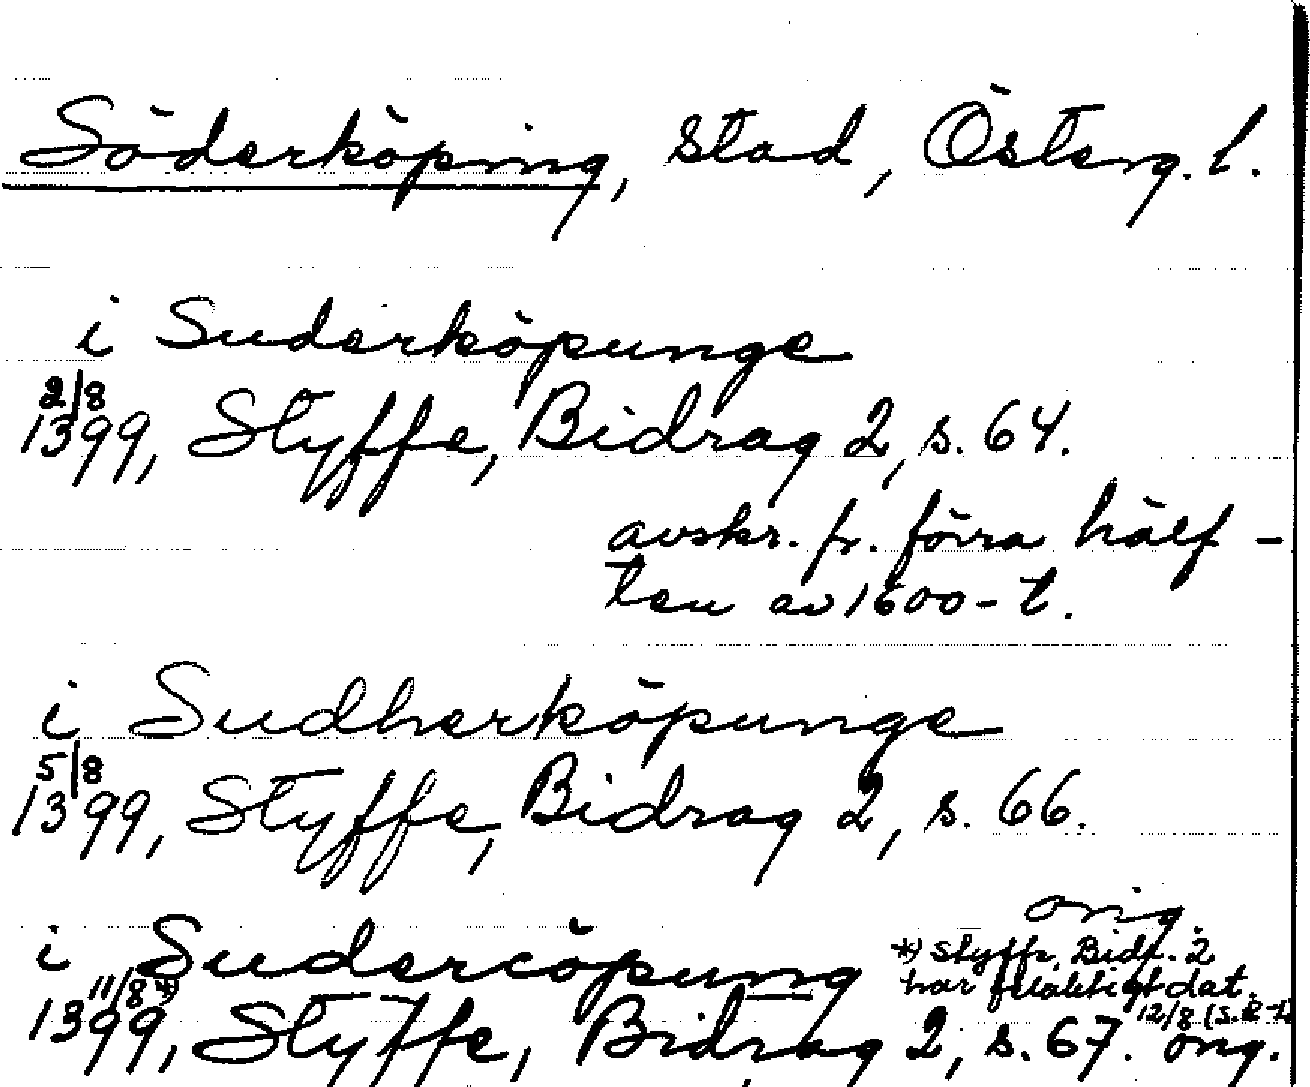 Söderköping, stad, Österg. l.
i Suderköpunge
2/8
1399, Styffe, Bidrag 2, s. 64.
avskr. fr. förra hälf-
ten av 1600-t.
i Sudherköpunge
5/8
1399, Styffe, Bidrag 2, s. 66.
orig.
i Sudercöpung
*) Styffe, Bidr. 2
har felaktigt dat.
12/8
11/8 *)
1399, Styffe, Bidrag 2, s. 67. orig.